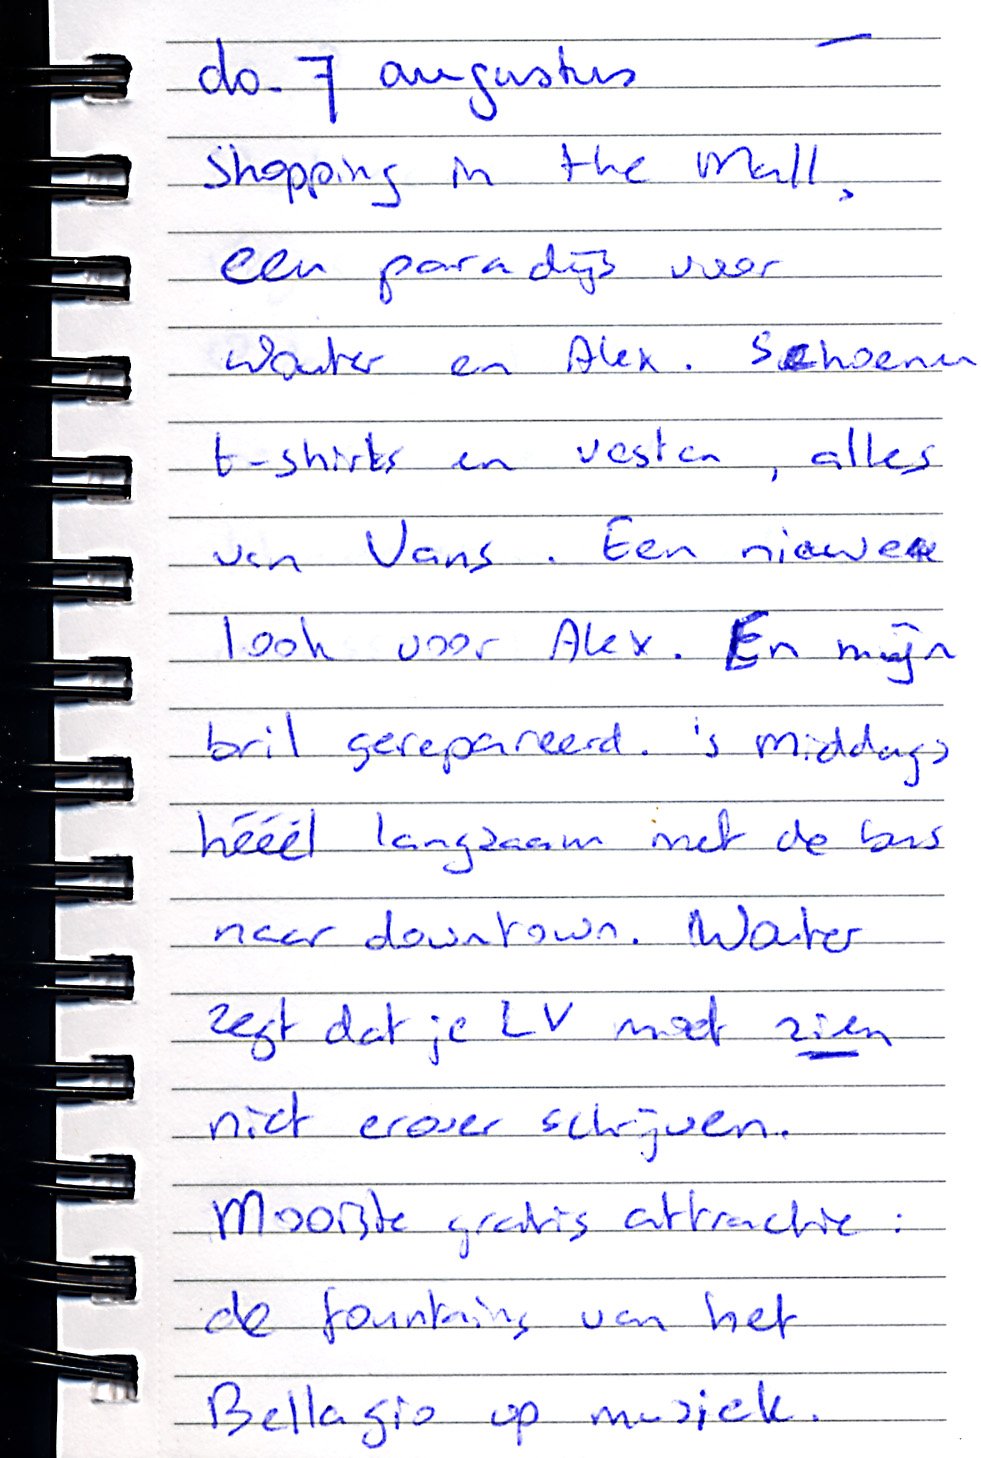 do. 7 augustus
Shopping in the Mall,
een paradijs voor
Wouter en Alex. Schoenen
t-shirts en vesten, alles
van Vans. Een nieuwe
look voor Alex. En mijn
bril gerepareerd. 's middags
hééél langzaam met de bus
naar downtown. Wouter
zegt dat je LV moet zien
niet erover schrijven.
Mooiste gratis attractie:
de fountains van het
Bellagio op muziek.